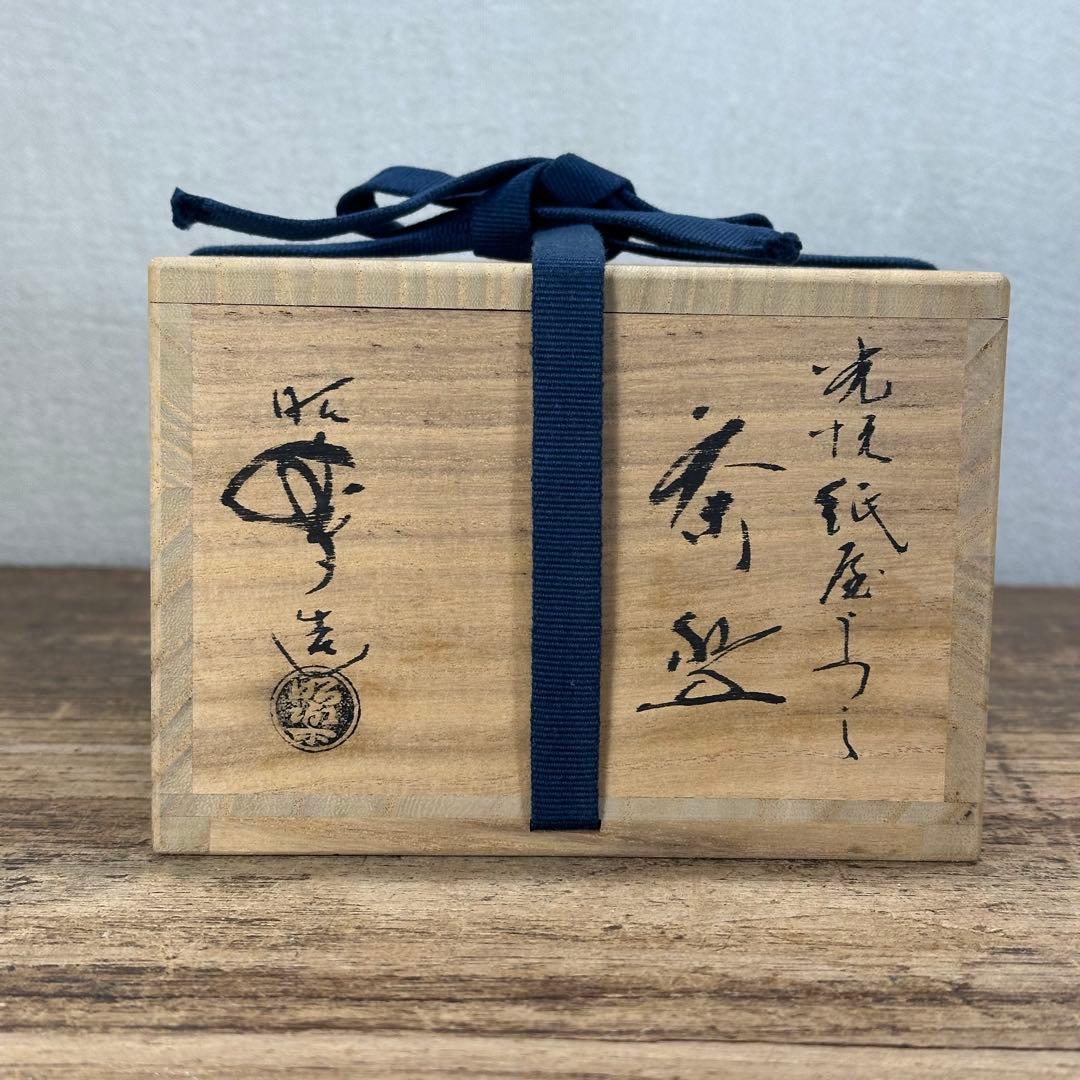 光悦紙屋うつし
茶盌
昭楽造